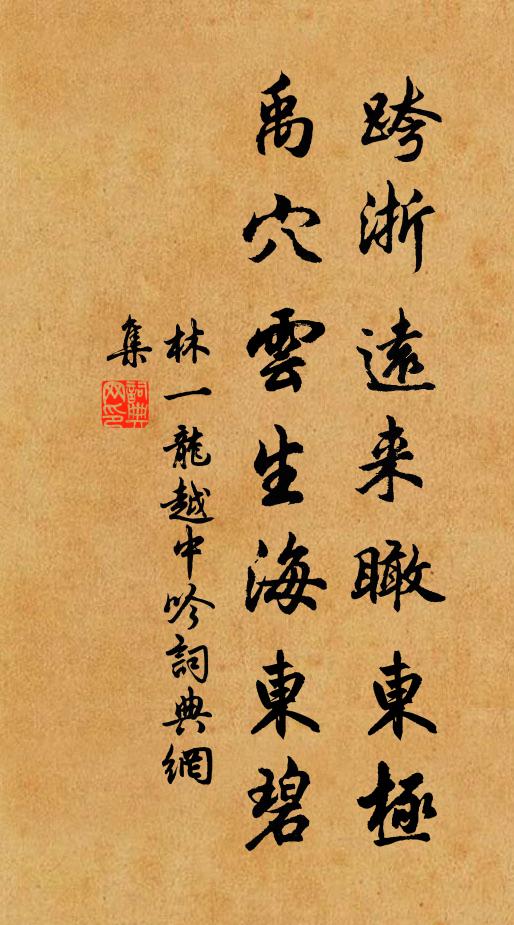 跨浙遠来瞰東極
禹穴雲生海東碧
林一龍越中吟詞典網
集
詞典网印